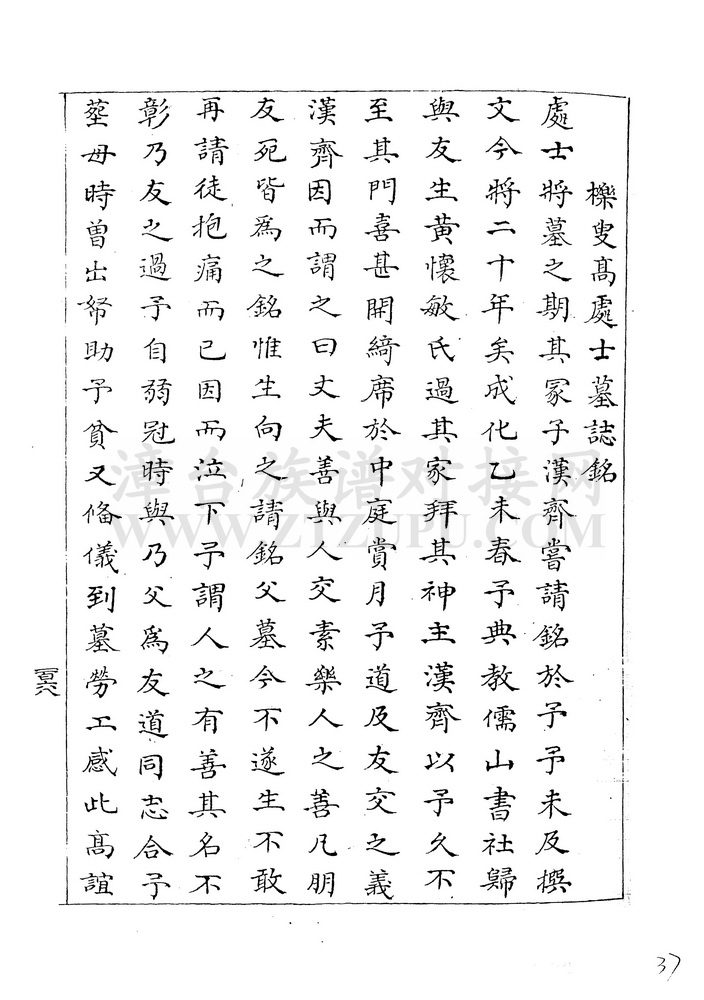 櫟叟髙處士墓誌銘
處士將墓之期其冢子漢齊嘗請銘於予予未及撰
文今將二十年矣成化乙未春予典教儒山書社歸
與友生黃懷敏氏過其家拜其神主漢齊以予久不
至其門喜甚開綺席於中庭賞月予道及友交之義
漢齊因而謂之曰丈夫善與人交素樂人之善凡朋
友死皆爲之銘惟生向之請銘父墓今不遂生不敢
再請徒抱痛而已因而泣下予謂人之有善其名不
彰乃友之過予自弱冠時與乃父爲友道同志合予
塟母時曾出帑助予貧又俻儀到墓勞工感此髙誼
一百六
37
漳台族谱对接网
WWW.ZTZUPU.COM